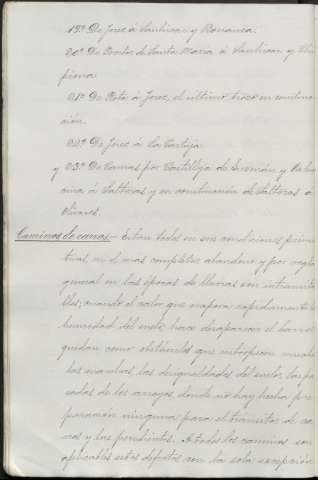 19º De Jerez á Sanlúcar y Bonanza.
20º De Puerto de Santa María á Sanlúcar y Chi-
piona
21º De Rota á Jerez, el último trozo en construc-
ción.
22º De Jerez á la Cartuja
y 23º De Camas por Castilleja de Guzmán y Valen-
cina á Salteras y en construcción de Salteras á
Olivares.
Caminos de carros — Están todos en sus condiciones primi-
tivas, en el mas completo abandono y por regla
general en las épocas de lluvias son intransita-
bles; cuando el calor que evapora rapidamente la
humedad del suelo, hace desaparecer el barro
quedan como obstáculos que entorpecen mucho
las marchas, las desigualdades del suelo, los pa-
sados de los arroyos, donde no hay hecha pre-
paración ninguna para el tránsito de ca-
rros y las pendientes. A todos los caminos son
aplicables estos defectos con la sola excepción